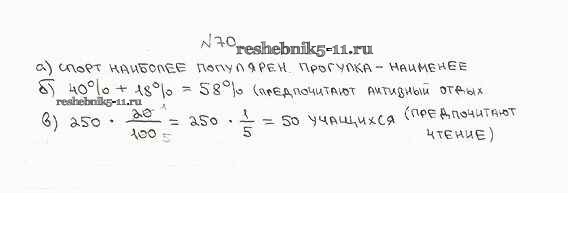 №70
reshebnik5-11.ru
а) СПОРТ НАИБОЛЕЕ ПОПУЛЯРЕН. ПРОГУЛКА – НАИМЕНЕЕ
б) 40% + 18% = 58% (ПРЕДПОЧИТАЮТ АКТИВНЫЙ ОТДЫХ
reshebnik5-11.ru
в) 250 · 20/100 = 250 · 1/5 = 50 УЧАЩИХСЯ (ПРЕДПОЧИТАЮТ
ЧТЕНИЕ)